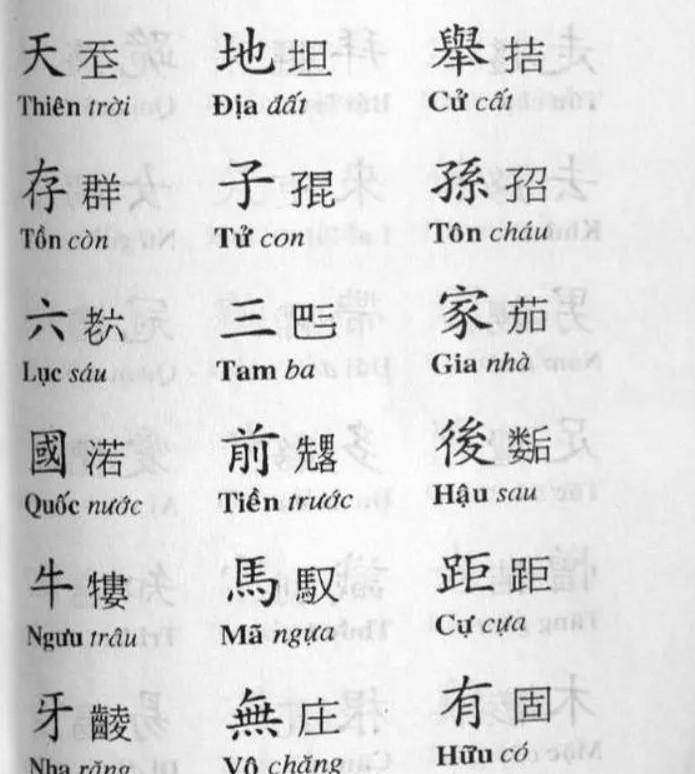 天 𡗶 地 坦 舉 拮
Thiên trời Địa đất Cử cất
存 群 子 𡥵 孫 𡥙
Tồn còn Tử con Tôn cháu
六 𦒹 三 𠀧 家 茹
Lục sáu Tam ba Gia nhà
國 渃 前 𠓀 後 𡢐
Quốc nước Tiền trước Hậu sau
牛 𤛠 馬 馭 距 距
Ngưu trâu Mã ngựa Cự cựa
牙 𪘵 無 庄 有 固
Nha răng Vô chăng Hữu có